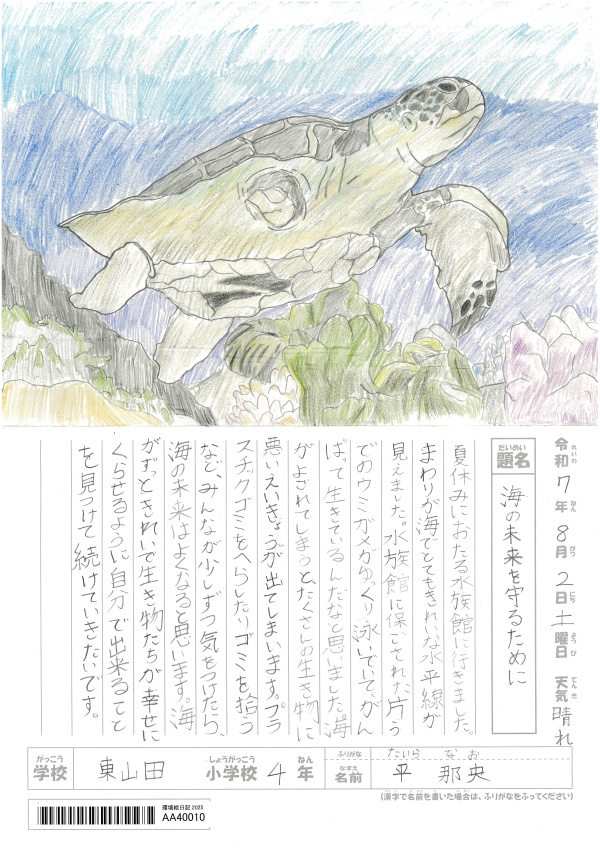 令和7年8月2日土曜日 天気晴れ
れいわ ねん がつ にち ようび てんき
だいめい
題名 海の未来を守るために
夏休みにおたる水族館に行きました。
まわりが海でとてもきれいな水平線が
見えました。水族館に保ごされた片う
でのウミガメがゆっくり泳いでいて、がん
ばって生きているんだなと思いました。海
がよごれてしまうと、たくさんの生き物に
悪いえいきょうが出てしまいます。プラ
スチックゴミをへらしたりゴミを拾う
など、みんなが少しずつ気をつけたら、
海の未来はよくなると思います。海
がずっときれいで生き物たちが幸せに
くらせるように自分で出来ること
を見つけて続けていきたいです。
がっこう しょうがっこう ねん ふりがな たいら なお
学校 東山田 小学校 4年 なまえ 名前 平 那央
(漢字で名前を書いた場合は、ふりがなをふってください)
環境絵日記 2025
AA40010